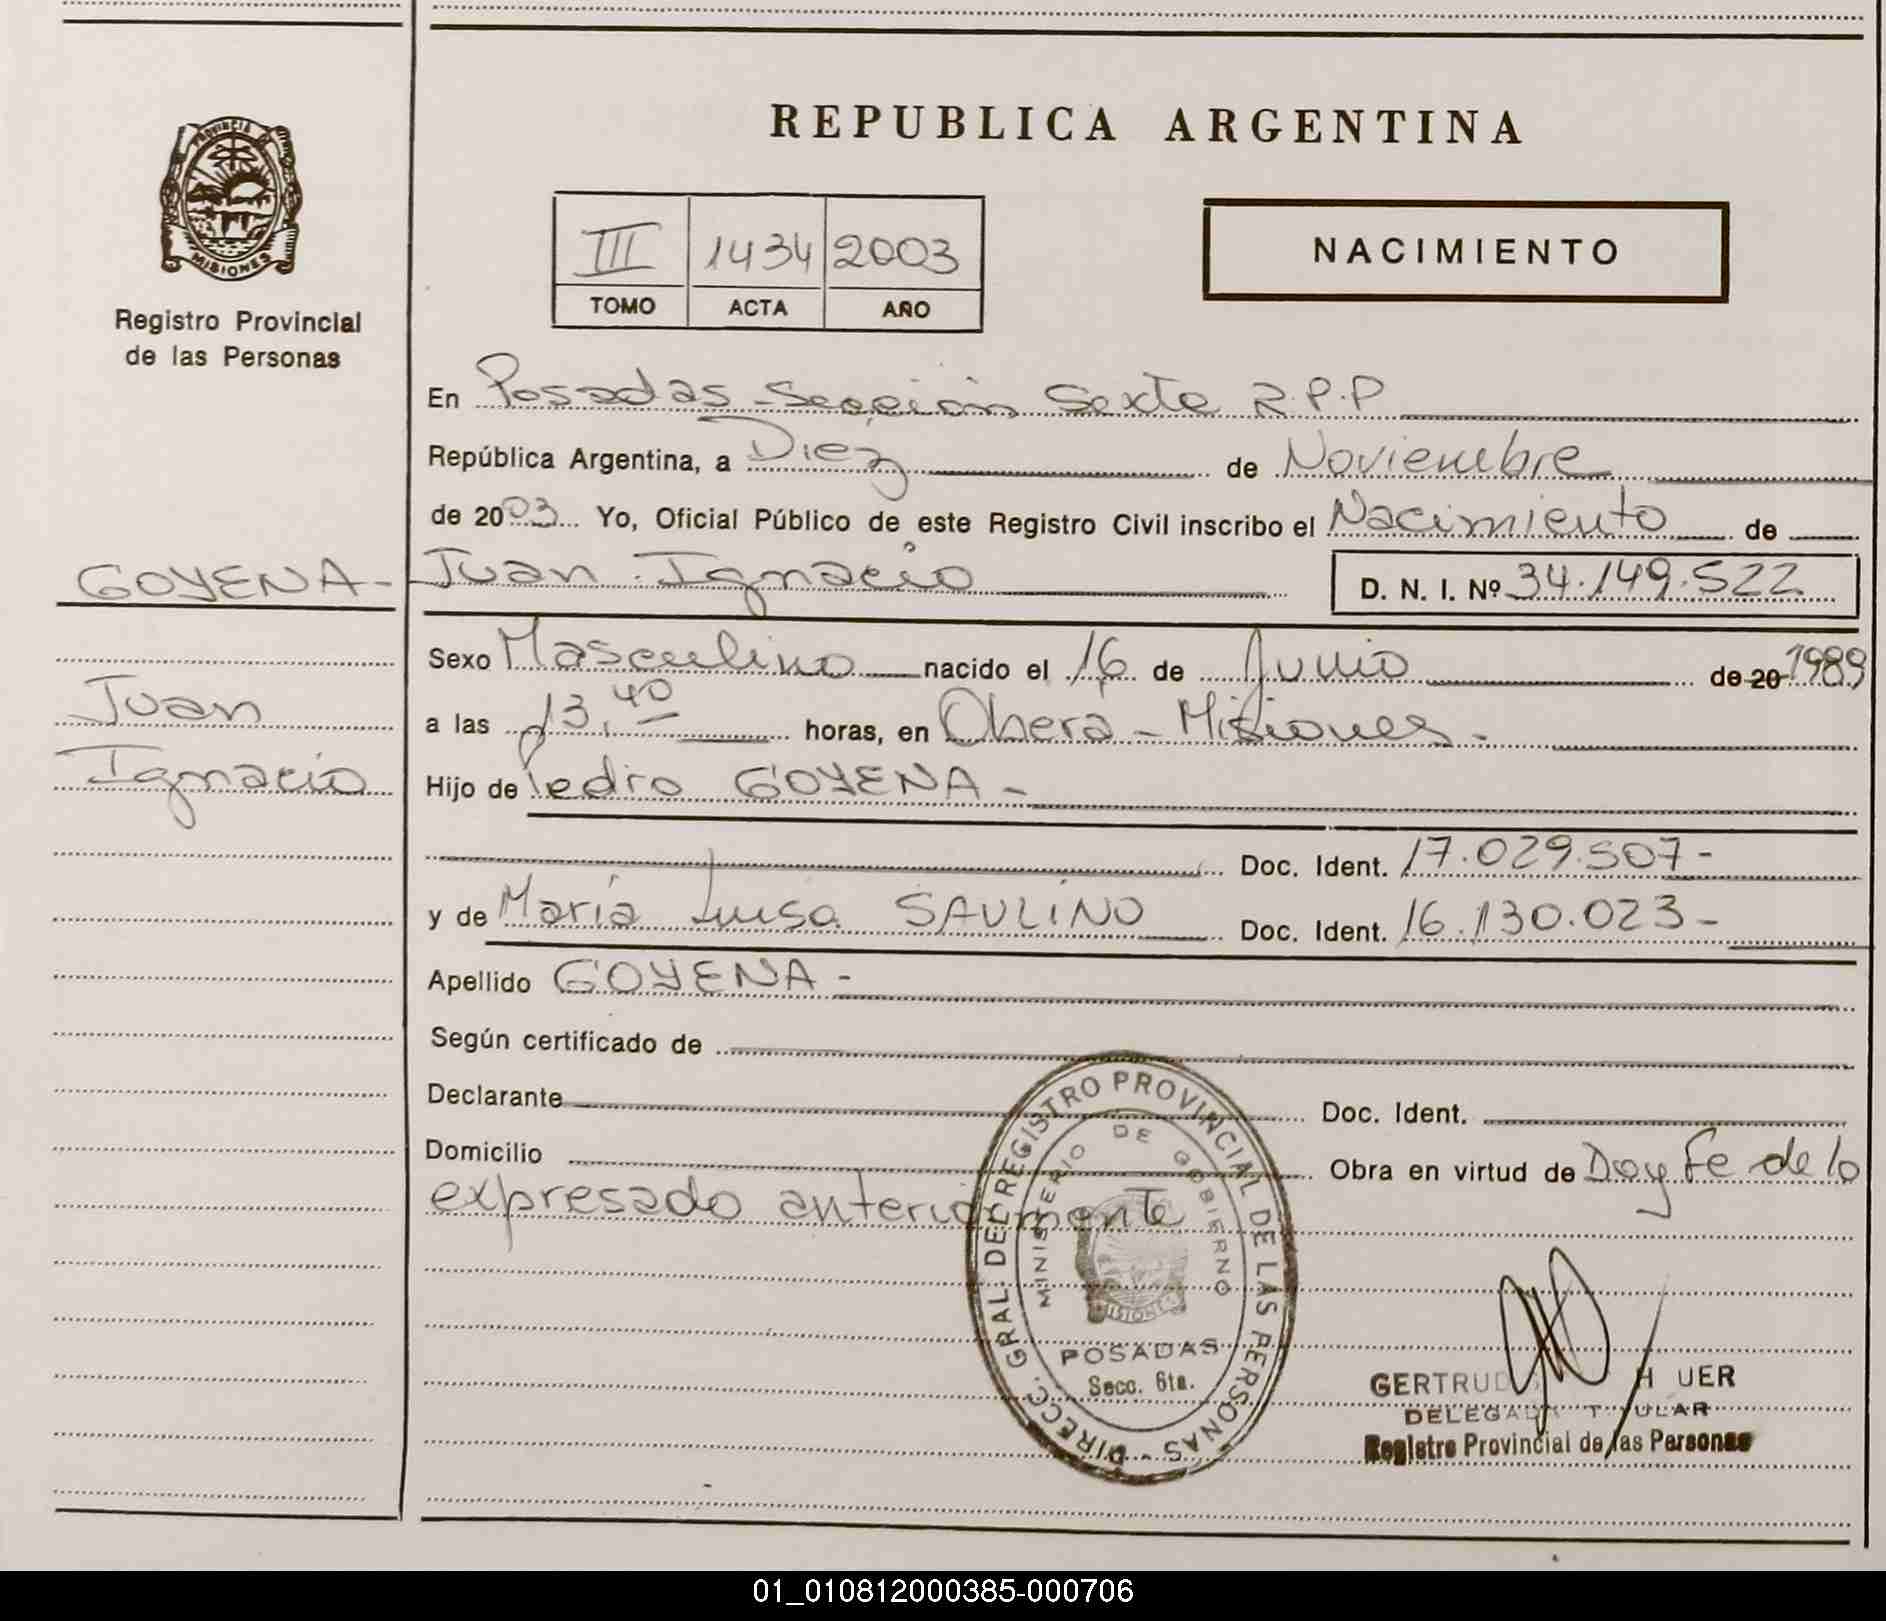 REPUBLICA ARGENTINA
PROVINCIA DE
MISIONES
Registro Provincial
de las Personas
III 1434 2003
TOMO ACTA AÑO
NACIMIENTO
En Posadas - Sección Sexta R.P.P
República Argentina, a Diez de Noviembre
de 2003 Yo, Oficial Público de este Registro Civil inscribo el Nacimiento de
GOYENA -
Juan
Ignacio
Juan Ignacio D. N. I. Nº 34.149.522
Sexo Masculino nacido el 16 de Junio de 20 1989
a las 13,40 horas, en Oberá - Misiones -
Hijo de Pedro GOYENA -
Doc. Ident. 17.029.507-
y de María Luisa SAULINO Doc. Ident. 16.130.023-
Apellido GOYENA -
Según certificado de
Declarante Doc. Ident.
Domicilio Obra en virtud de Doy fe de lo
expresado anteriormente
DIRECC. GRAL. DEL REGISTRO PROVINCIAL DE LAS PERSONAS -
MINISTERIO DE GOBIERNO
MISIONES
POSADAS
Secc. 6ta.
GERTRUD H UER
DELEGADA T ULAR
Registro Provincial de las Personas
01_010812000385-000706